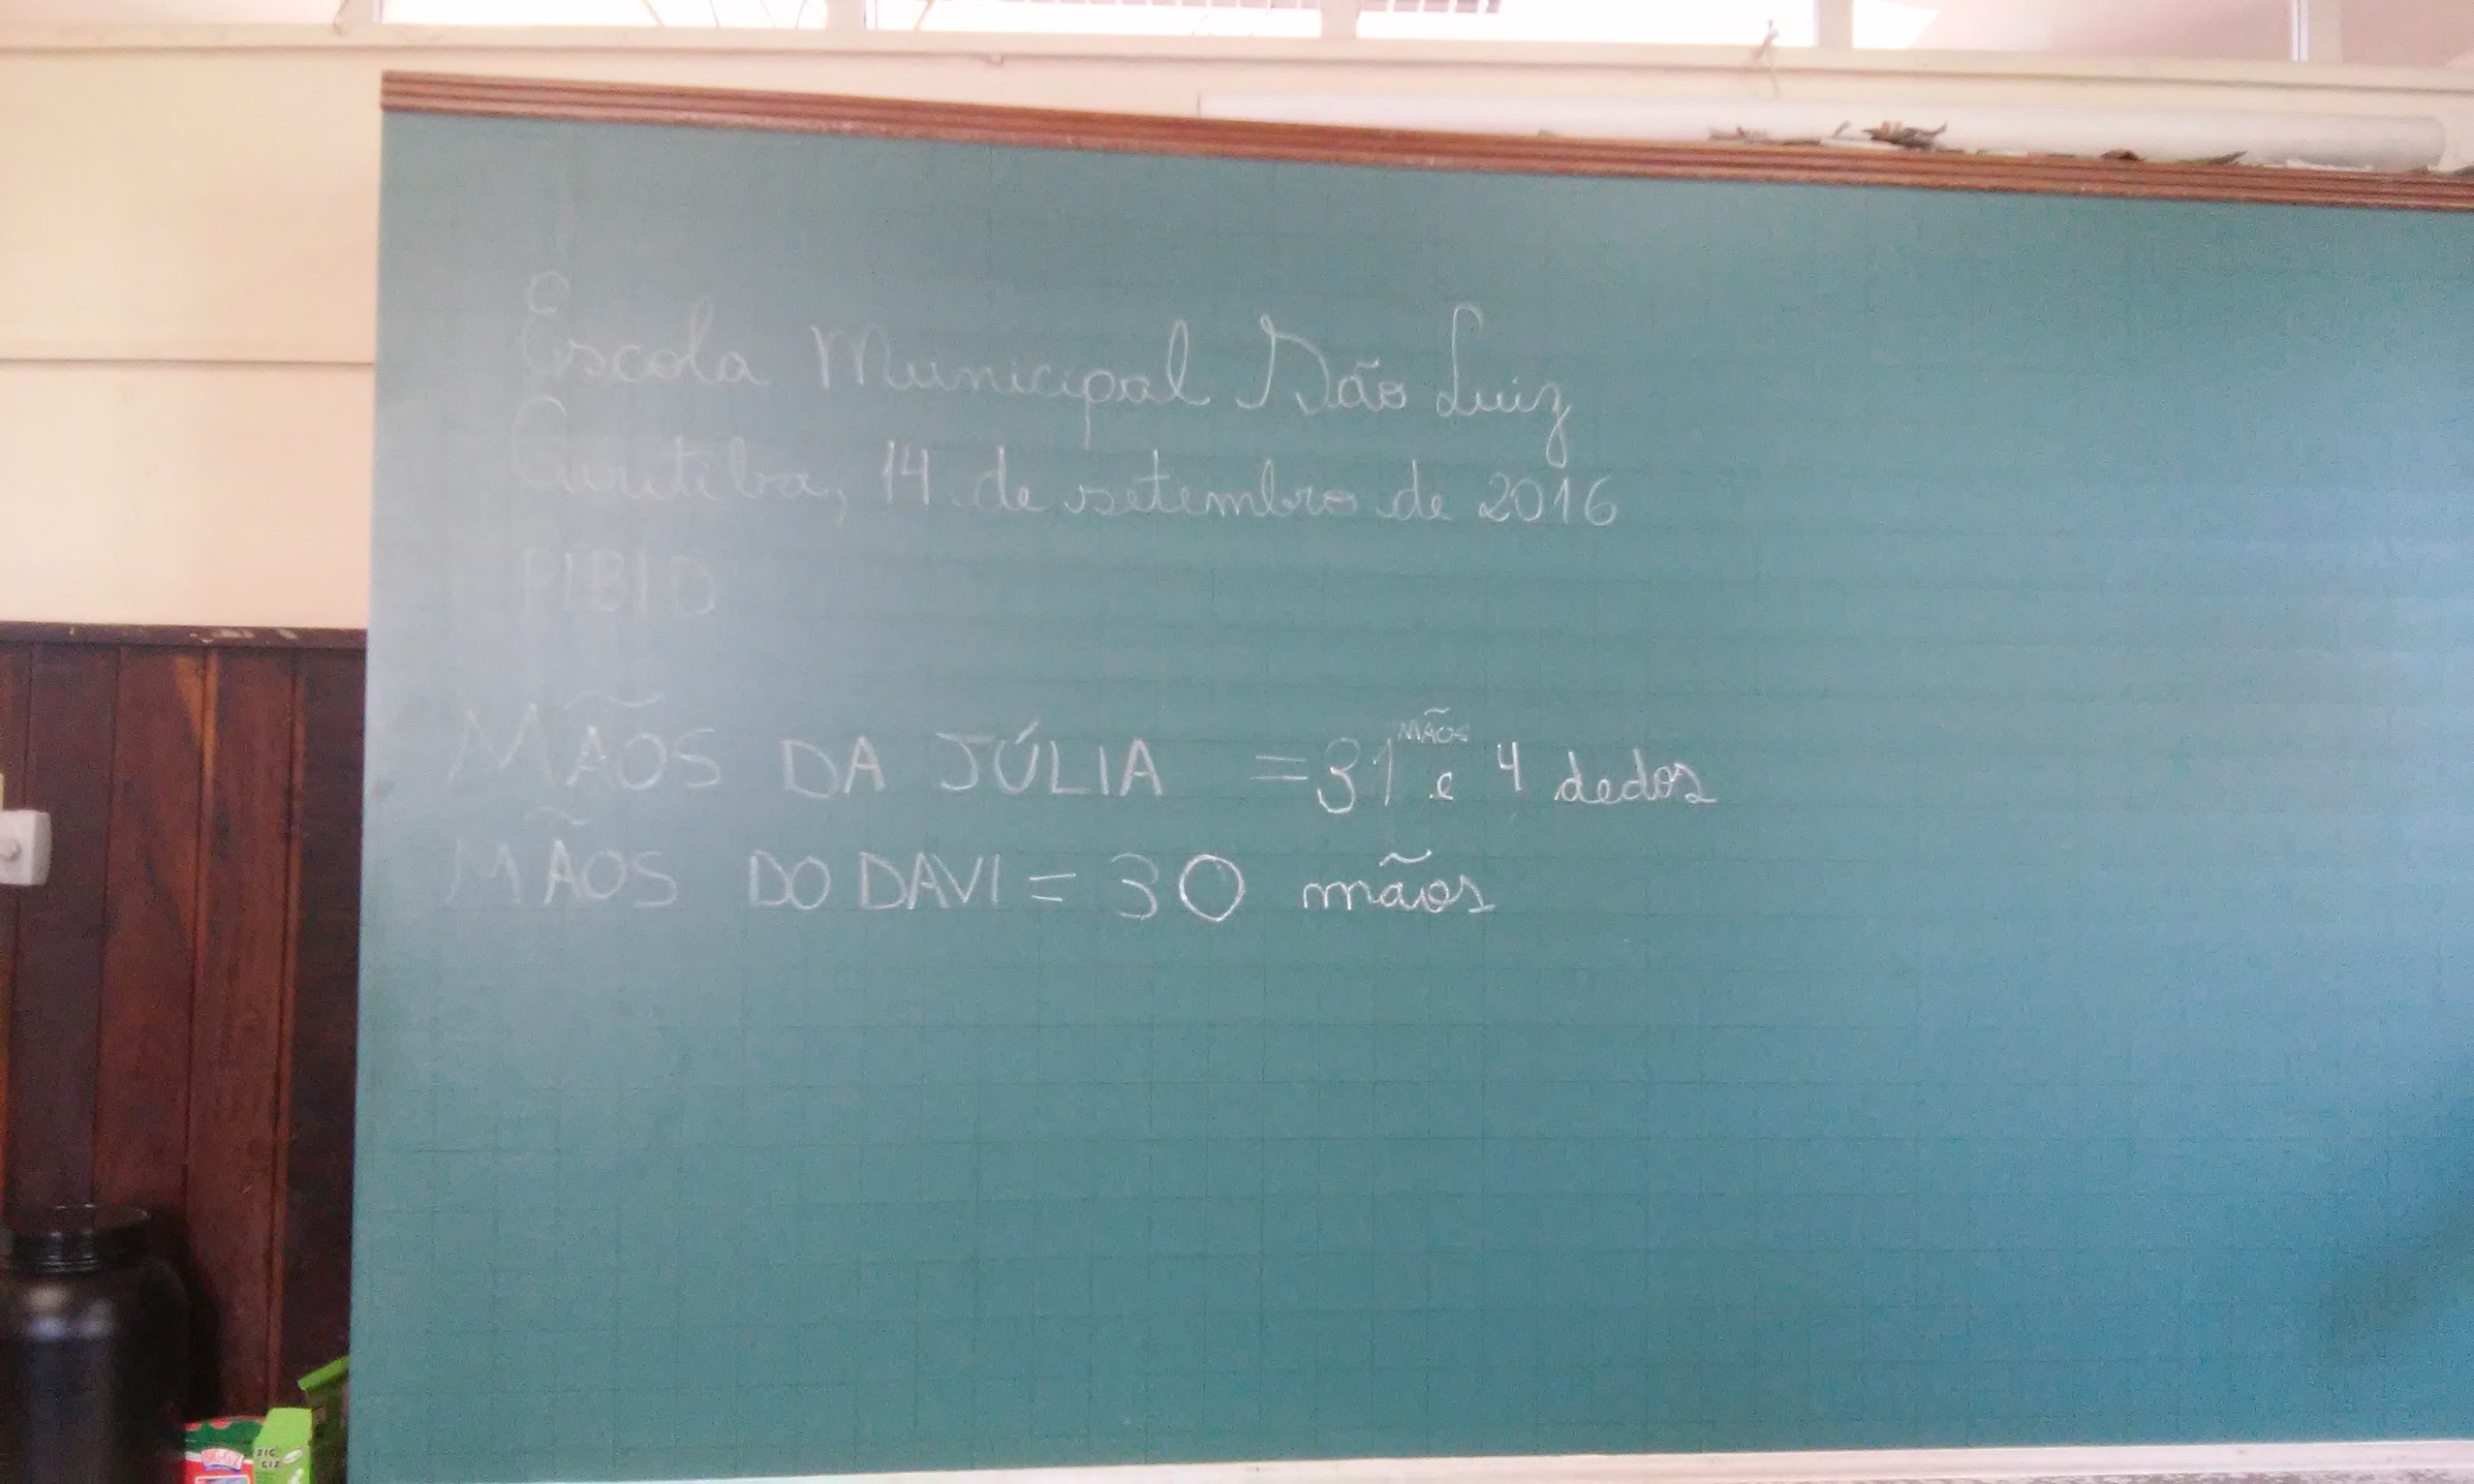 Escola Municipal São Luiz
Curitiba, 14 de setembro de 2016
PIBID
MÃOS DA JÚLIA = 31 MÃOS e 4 dedos
MÃOS DO DAVI = 30 mãos